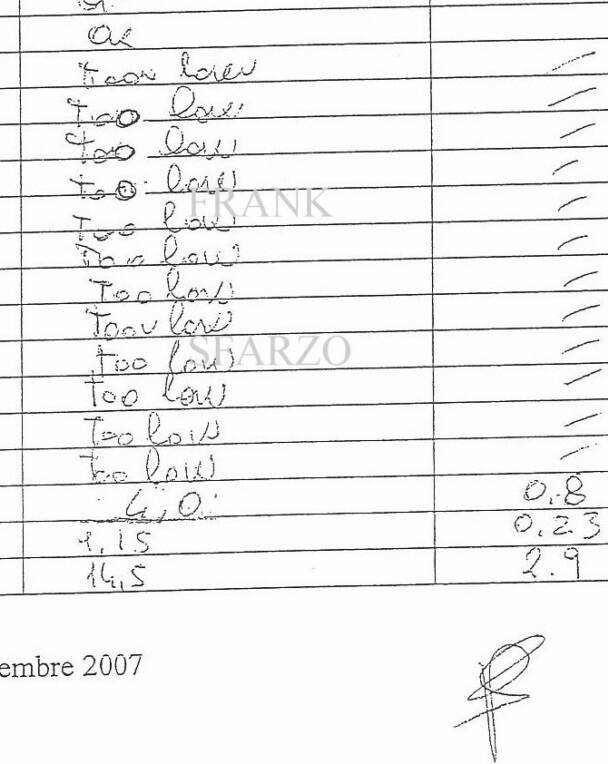 OK
Too low
Too low /
Too low /
Too low /
Too low /
Too low /
Too low /
Too low /
Too low /
Too low /
Too low /
Too low /
4,0 0.8
1,15 0.23
14,5 2.9
FRANK
SFARZO
embre 2007